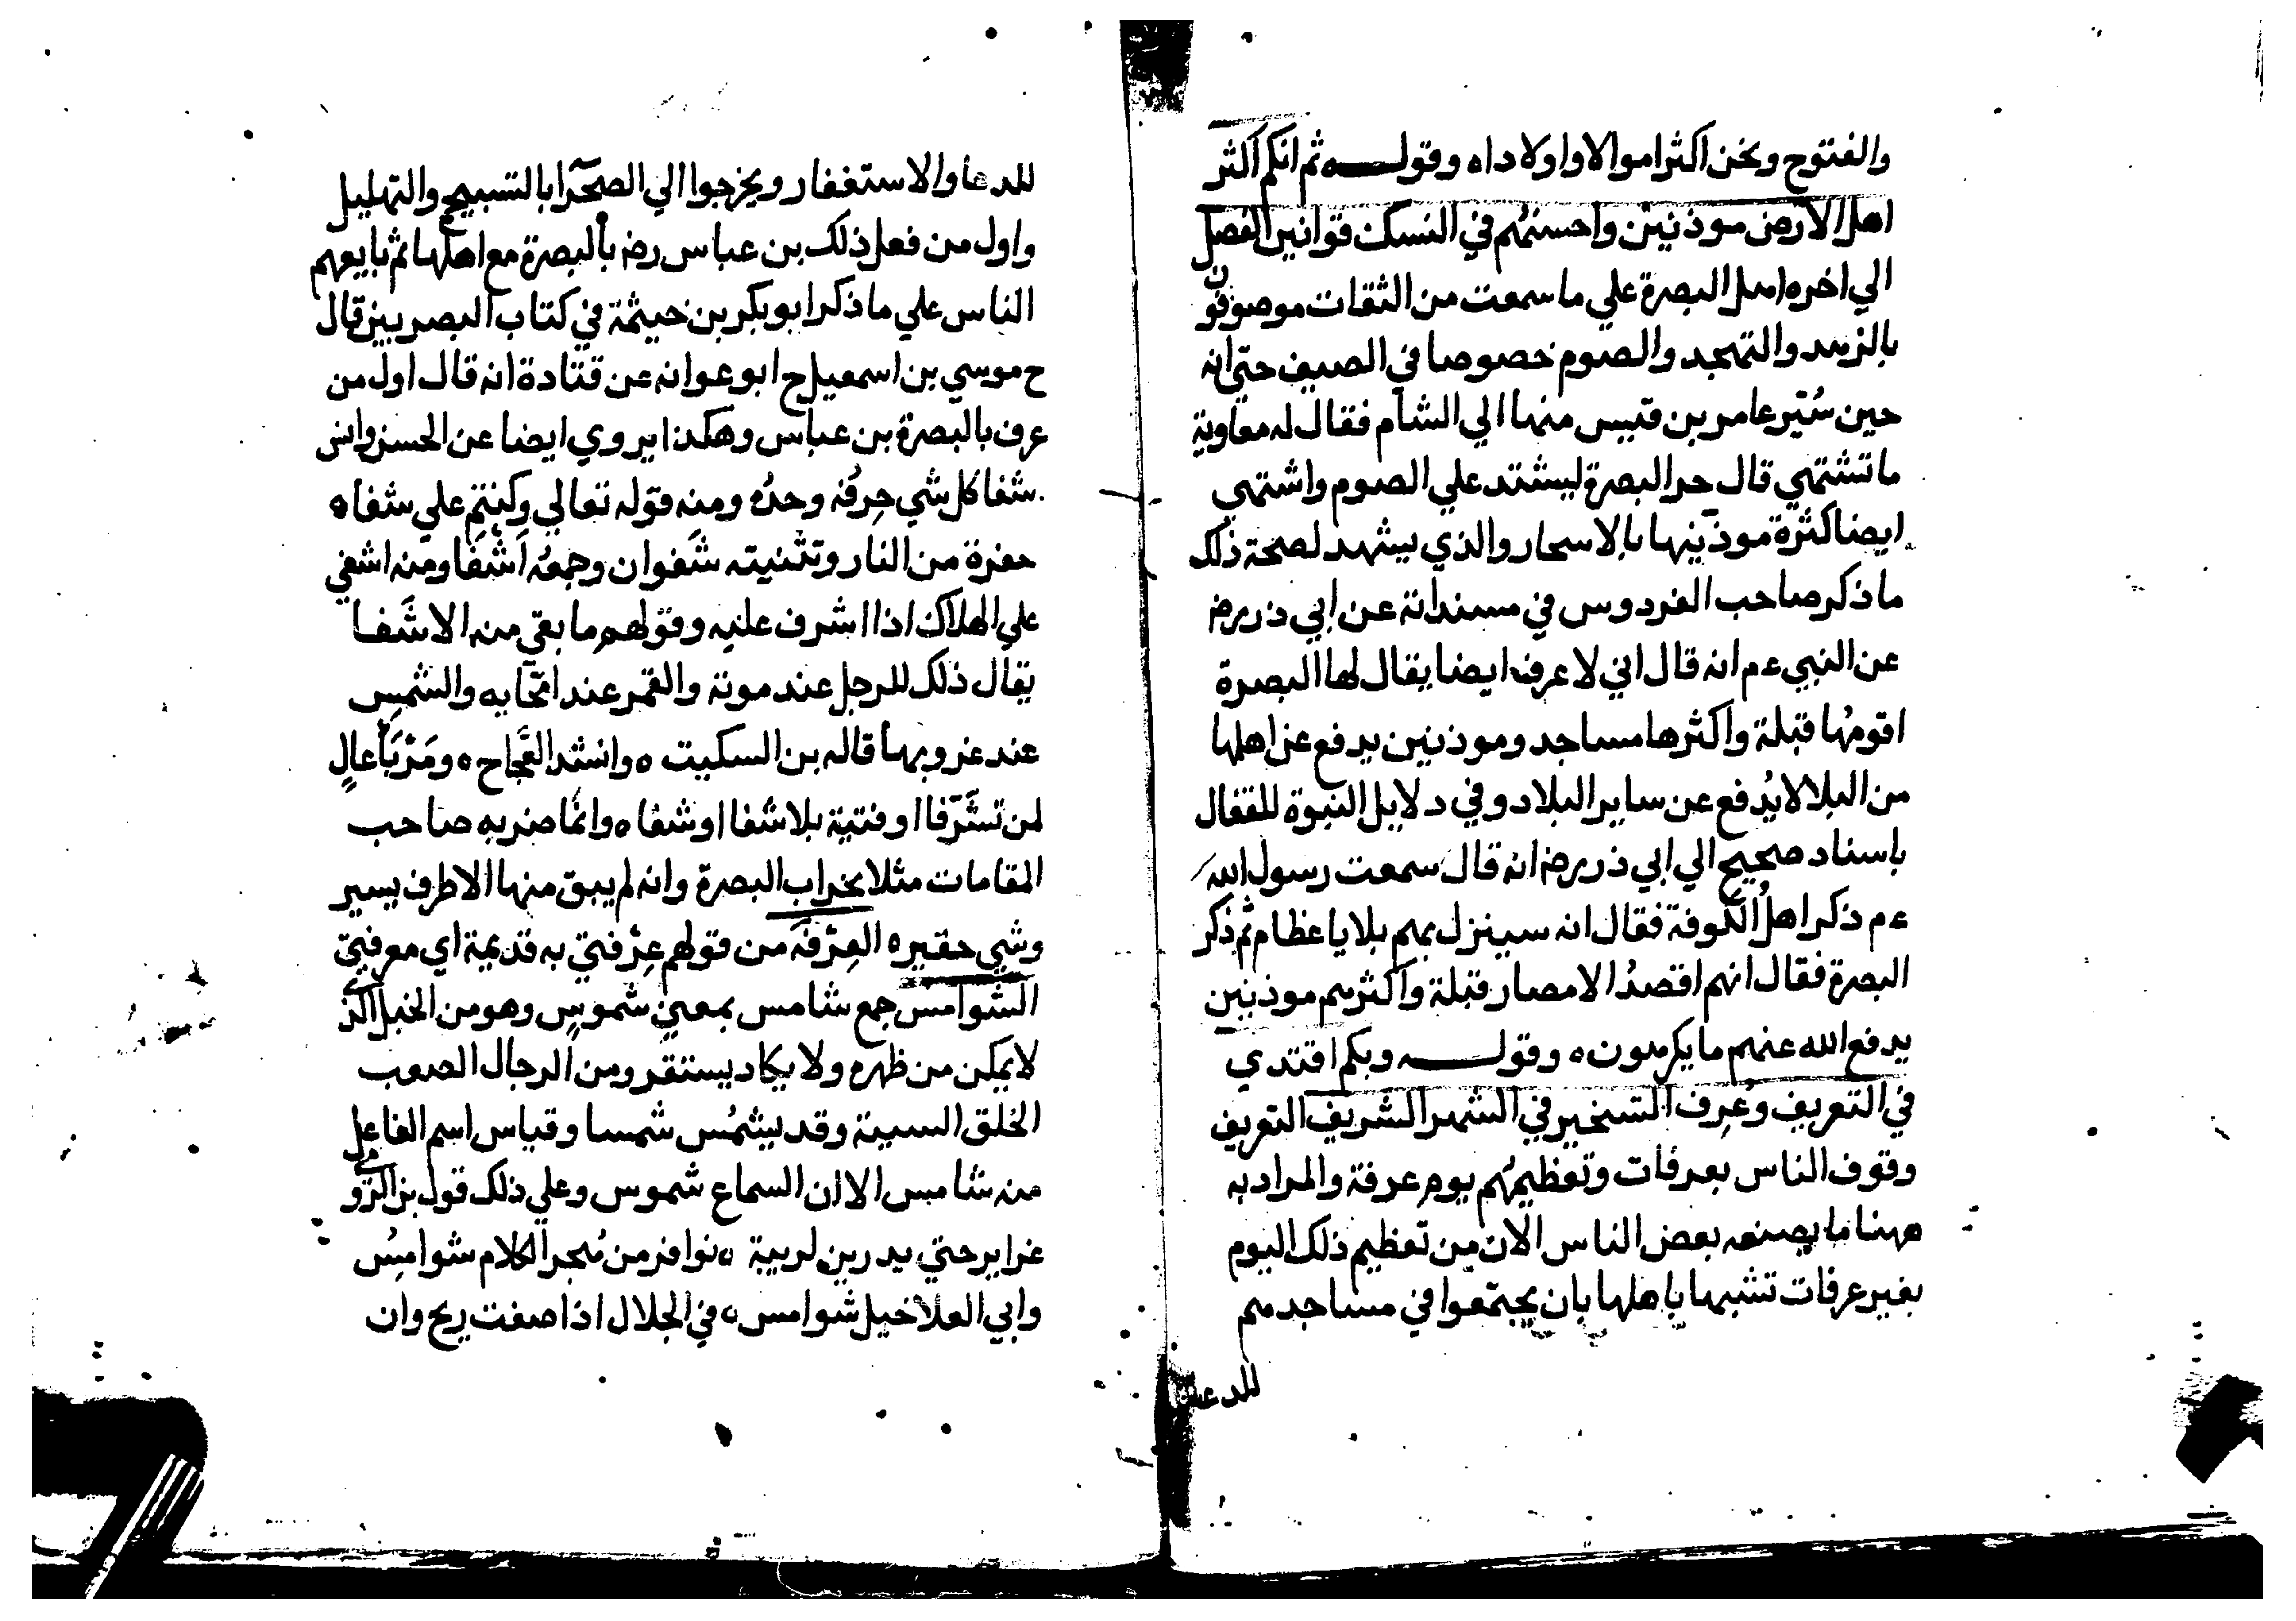 والفتوح ونحن اكثر اموالا واولادا ه وقولـــه ثم انكم اكثر
اهل الارض موذنين واحسنهم في النسك قوانين الفصل
الي اخره اهل البصرة علي ما سمعت من الثقات موصوفون
بالزهد والتهجد والصوم خصوصا في الصيف حتي انه
حين سُيّر عامر بن قيس منها الي الشام فقال له معاوية
ما تشتهي قال حر البصرة ليشتد علي الصوم واشتهي
ايضا كثرة موذنيها بالاسحار والذي يشهد لصحة ذلك
ما ذكر صاحب الفردوس في مسنداته عن ابي ذر رض
عن النبي ءم انه قال اني لاعرف ايضا يقال لها البصرة
اقومُها قبلة واكثرها مساجد وموذنين يدفع عن اهلها
من البلا لا يُدفع عن ساير البلاد وفي دلايل النبوة للقفال
باسناد صحيح الي ابي ذر رض انه قال سمعت رسول الله
ءم ذكر اهلُ الكوفة فقال انه سينزل بهم بلايا عظام ثم ذكر
البصرة فقال انهم اقصدُ الامصار قبلة واكثرهم موذنين
يدفع الله عنهم ما يكرهون ه وقولـــه وبكم اقتدي
في التعريف وعُرِف التسخير في الشهر الشريف التعريف
وقوف الناس بعرفات وتعظيمُهم يوم عرفة والمراد به
ههنا ما يصنعه بعض الناس الان من تعظيم ذلك اليوم
بغير عرفات تشبها باهلها بان يجتمعوا في مساجدهم
للدعا
للدعا والاستغفار ويخرجوا الي الصحرا بالتسبيح والتهليل
واول من فعل ذلك بن عباس رض بالبصرة مع اهلها ثم بايعهم
الناس علي ما ذكر ابو بكر بن خيثمة في كتاب البصريين قال
ح موسي بن اسمعيل ح ابو عوانه عن قتادة انه قال اول من
عرف بالبصرة بن عباس وهكذا يروي ايضا عن الحسن وانس
شفا كل شي حِرفُه وحدُه ومنه قوله تعالي وكنتم علي شفا ه
حفرة من النار وتثنيته شَفوان وجمعُه اَشْفَا ومنه اشفي
علي الهلاك اذا اشرف عليه وقولهم ما بقي منه الا شَفا
يقال ذلك للرجل عند موته والقمر عند امحّايه والشمس
عند غروبها قاله بن السكيت ه وانشد العجّاح ه ومَرْبَأٍ عالٍ
لمن تشَرّفا او فتية بلا شفا او شفا ه وانما ضربه صاحب
المقامات مثلا بخراب البصرة وانه لم يبق منها الا طرف يسير
وشي حقير ه العِرْفَة من قولهم عِرْفتي به قديمة اي معرفتي
الشوامس جمع شامس بمعني شموسٍ وهو من الخيل الذ
لا يمكن من ظهره ولا يكاد يستقر ومن الرجال الصعب
الخلق السيية وقد يشمُس شمسا وقياس اسم الفاعل
منه شامس الا ان السماع شموس وعلي ذلك قول بن الرومي
غراير حتي يدرين لريبة ه نوافر من هُجر الكلام شوامِسُ
وابي العلا خيل شوامس ه في الجلال اذا صفت ريح وان